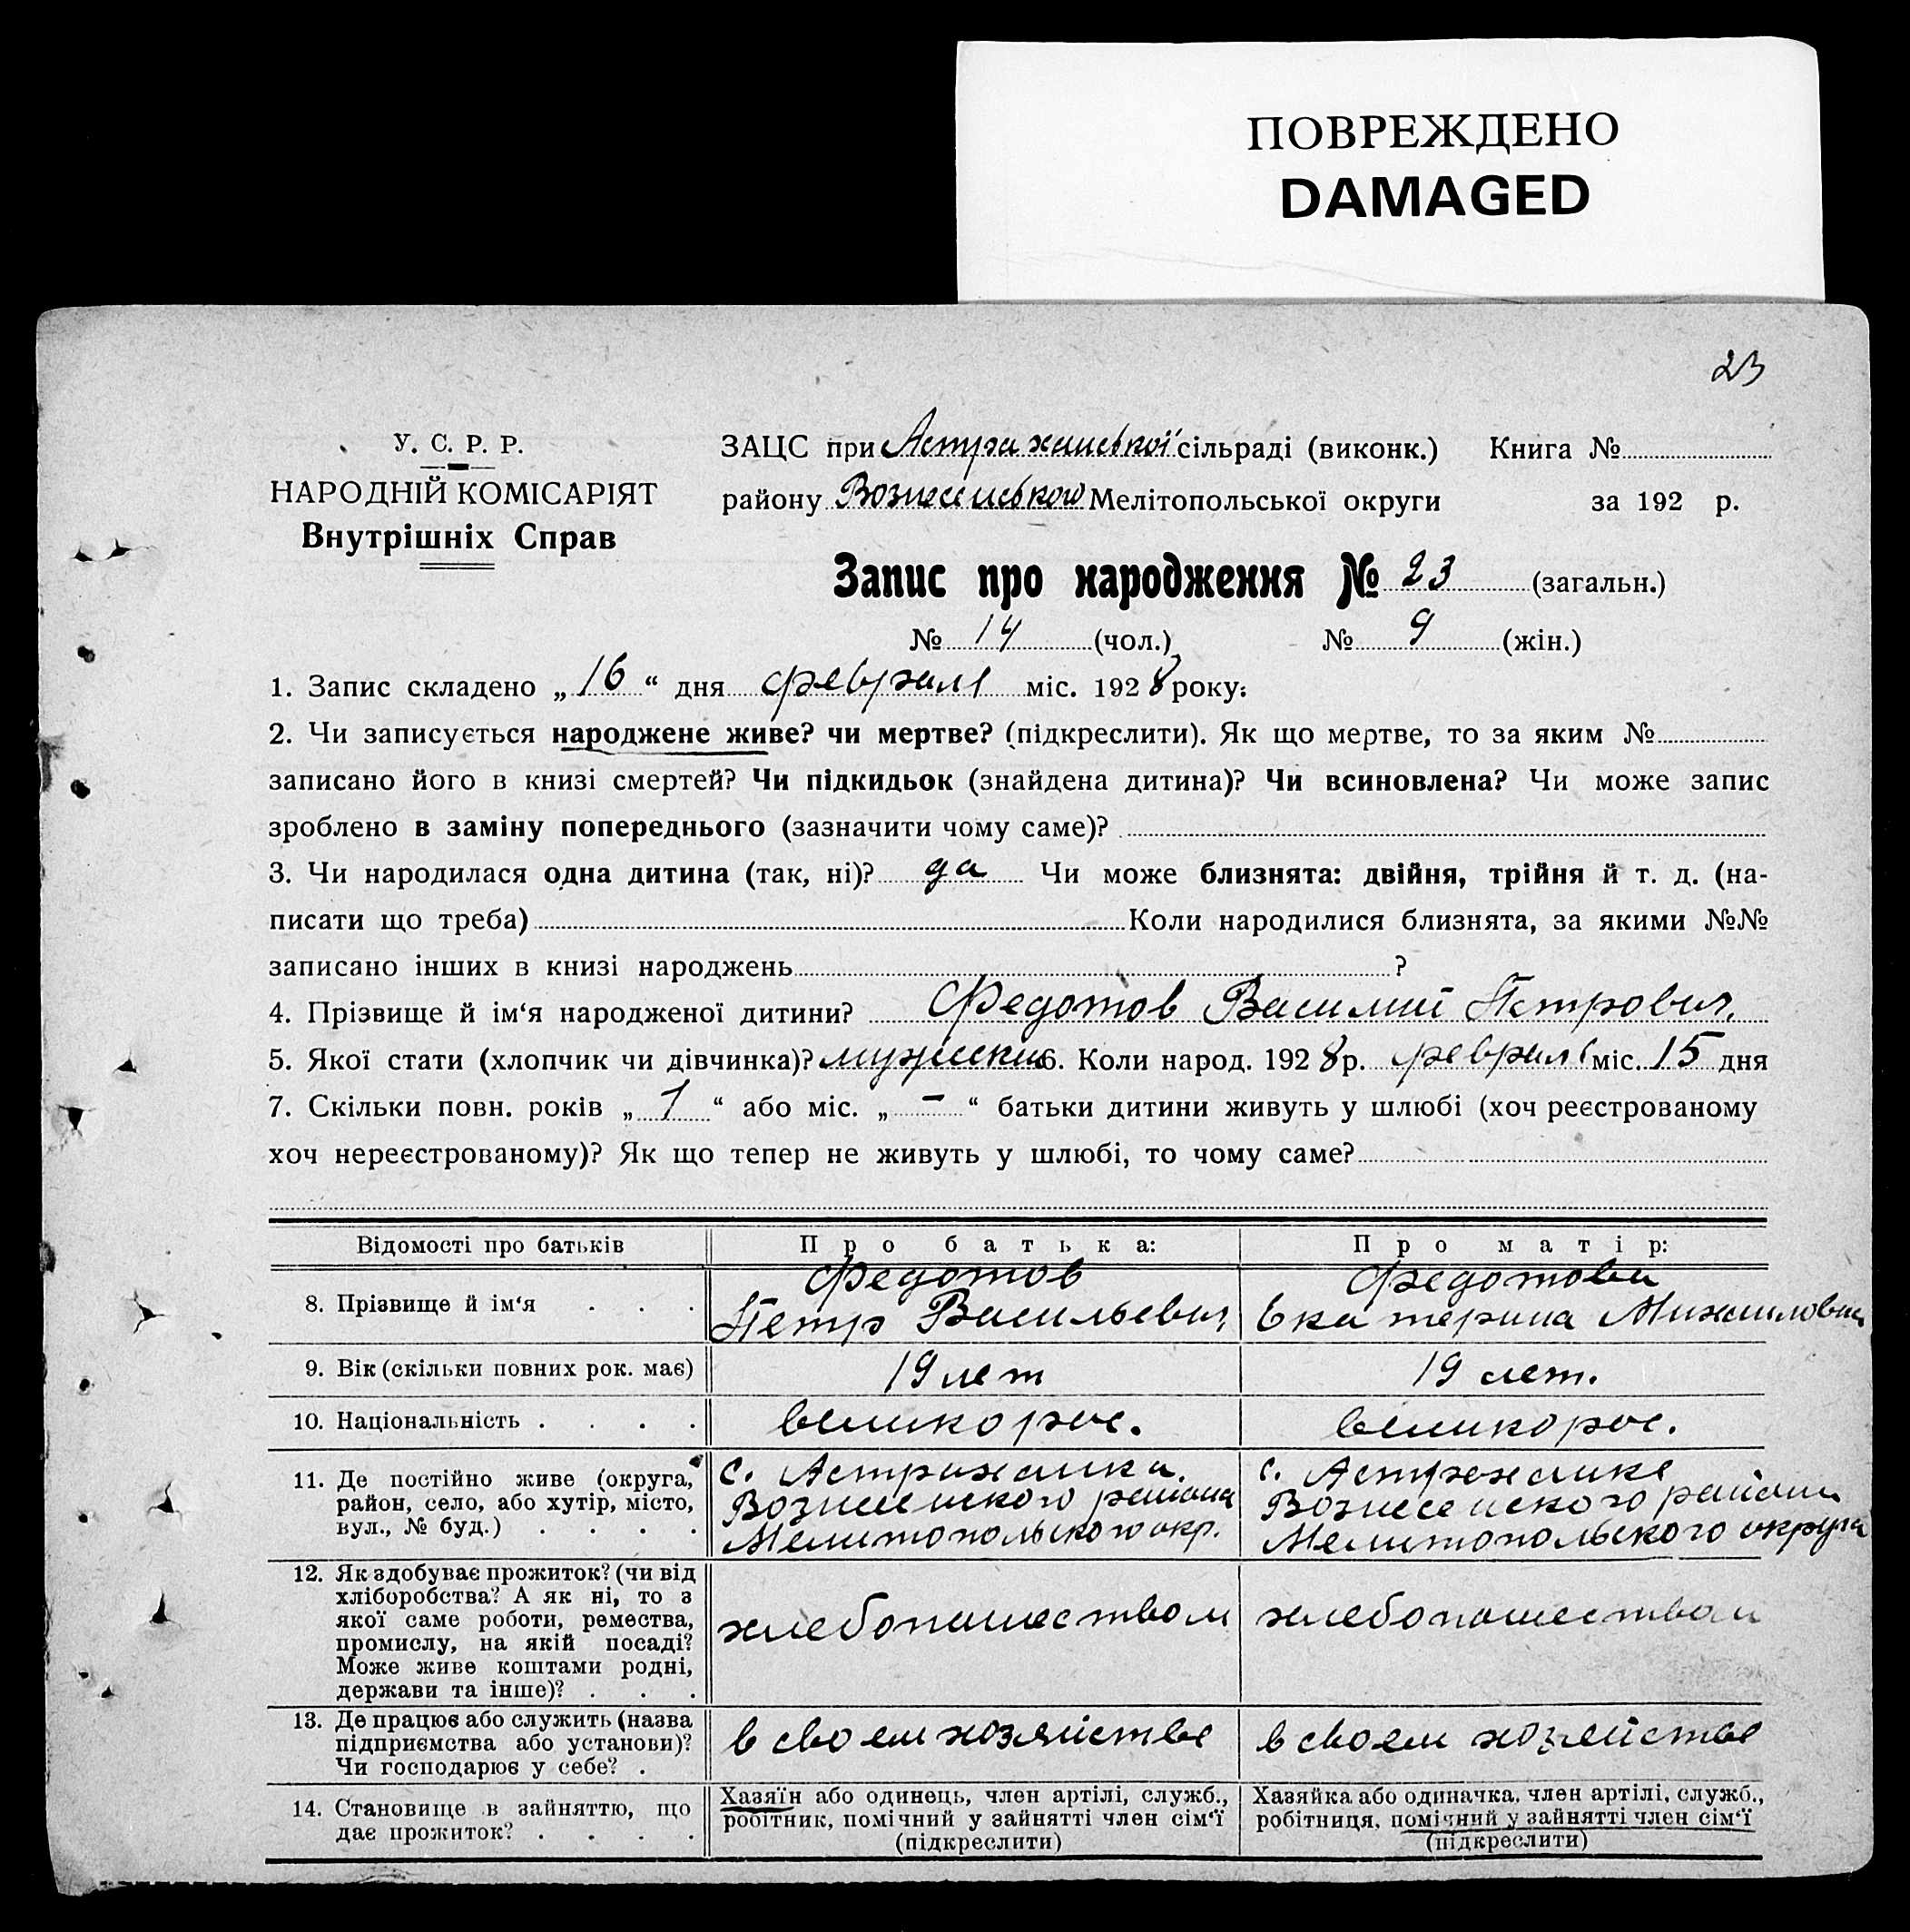 ПОВРЕЖДЕНО
DAMAGED
23
У. С. Р. Р.
НАРОДНІЙ КОМІСАРІЯТ
Внутрішніх Справ
ЗАЦС при Астраханської сільраді (виконк.) Книга №
району Вознесенського Мелітопольської округи за 192 р.
Запис про народження № 23 (загальн.)
№ 14 (чол.) № 9 (жін.)
1. Запис складено „16“ дня февраля міс. 1928 року:
2. Чи записується народжене живе? чи мертве? (підкреслити). Як що мертве, то за яким №
записано його в книзі смертей? Чи підкидьок (знайдена дитина)? Чи всиновлена? Чи може запис
зроблено в заміну попереднього (зазначити чому саме)?
3. Чи народилася одна дитина (так, ні)? да Чи може близнята: двійня, трійня й т. д. (на-
писати що треба) Коли народилися близнята, за якими №№
записано інших в книзі народжень ?
4. Прізвище й ім‘я народженої дитини? Федотов Василий Петрович.
5. Якої стати (хлопчик чи дівчинка)? мужеский 6. Коли народ. 1928 р. февраля міс. 15 дня
7. Скільки повн. років „1“ або міс. „-“ батьки дитини живуть у шлюбі (хоч реєстрованому
хоч нереєстрованому)? Як що тепер не живуть у шлюбі, то чому саме?
Відомості про батьків Про батька: Про матір:
8. Прізвище й ім‘я . . . Федотов Петр Васильевич Федотова Екатерина Михаиловна
9. Вік (скільки повних рок. має) 19 лет 19 лет.
10. Національність . . . . великорос. великорос.
11. Де постійно живе (округа, с. Астраханка. с. Астраханке
район, село, або хутір, місто, Вознесенского района Вознесенского района
вул., № буд.) . . . . Мелитопольского окр. Мелитопольского округа
12. Як здобуває прожиток? (чи від
хліборобства? А як ні, то з
якої саме роботи, ремества, хлебопашеством хлебопашеством
промислу, на якій посаді?
Може живе коштами родні,
держави та інше)? . . .
13. Де працює або служить (назва
підприємства або установи)? в своем хозяйстве в своем хозяйстве
Чи господарює у себе? .
14. Становище в зайняттю, що Хазяїн або одинець, член артілі, служб., Хазяйка або одиначка, член артілі, служб.,
дає прожиток? . . . . робітник, помічний у зайнятті член сім‘ї робітниця, помічний у зайнятті член сім‘ї
(підкреслити) (підкреслити)